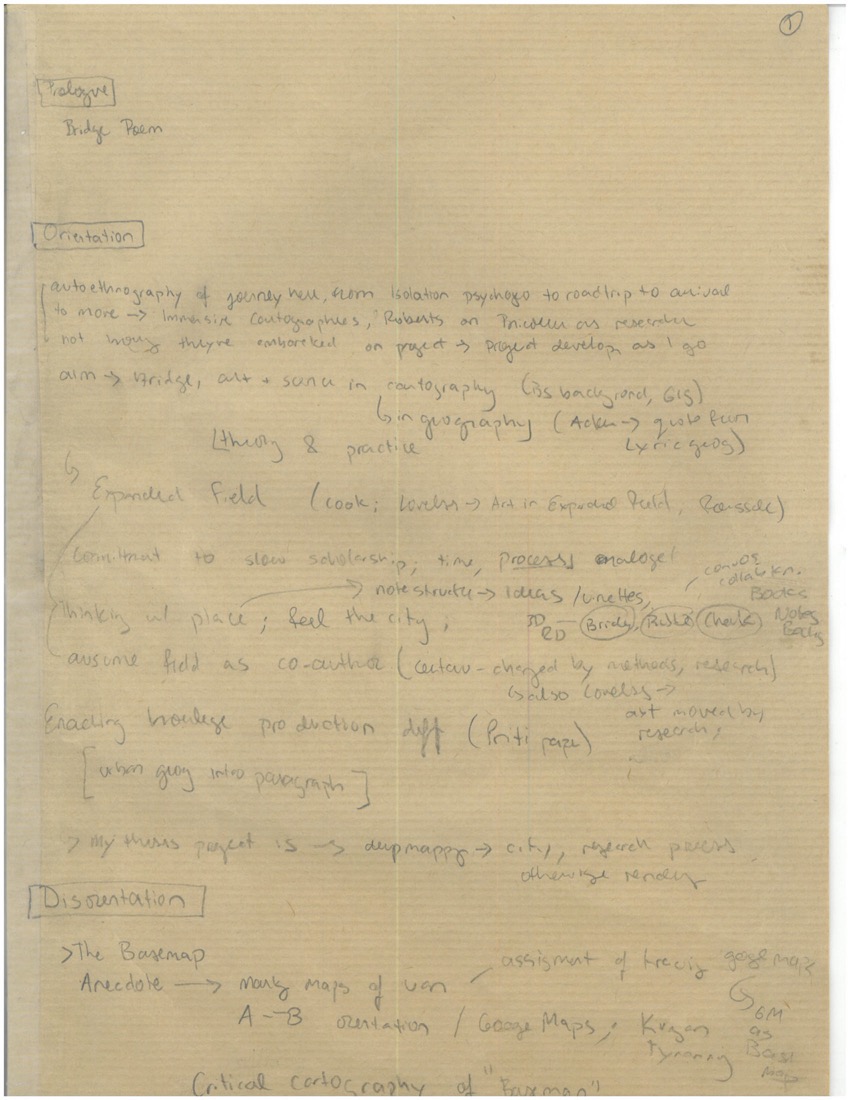 1
Prologue
Bridge Poem
Orientation
autoethnography of journey here, from Isolation to roadtrip to arrival
to more → Immersive Cartographies, Roberts on as researcher
not knowing they're embarked on project → Project develops as I go
aim → Bridge, art + science in cartography (BS background, GIS)
↳ in geography (Acker → quote from
Lyric geog)
theory & practice
↳ Expanded Field (Cook; Loveless → Art in Expanded Field,
Commitment to slow scholarship; time, process, analoge
→ note structure → Ideas /
convos
Books
Notes
Thinking w/ place; feel the city,
3D
2D
assume field as co-author ( changed by methods, research)
↳ also Loveless →
art moved by
research;
Enacting production diff (
[urban geog intro paragraph]
> My thesis project is → → city, research process
otherwise
Disorientation
> The Basemap
Anecdote → maps of van
assigment of google maps
A – B orentation / Google Maps;
GM
as
Base
map
Critical cartography of "Basemap"